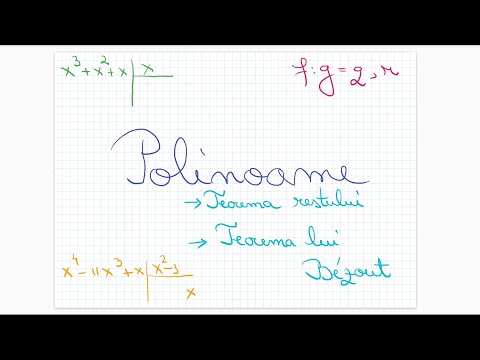 x³+x²+x | x
f:g=q,r
Polinoame
→Teorema restului
→Teorema lui
Bézout
x⁴-11x³+x | x²-1
x